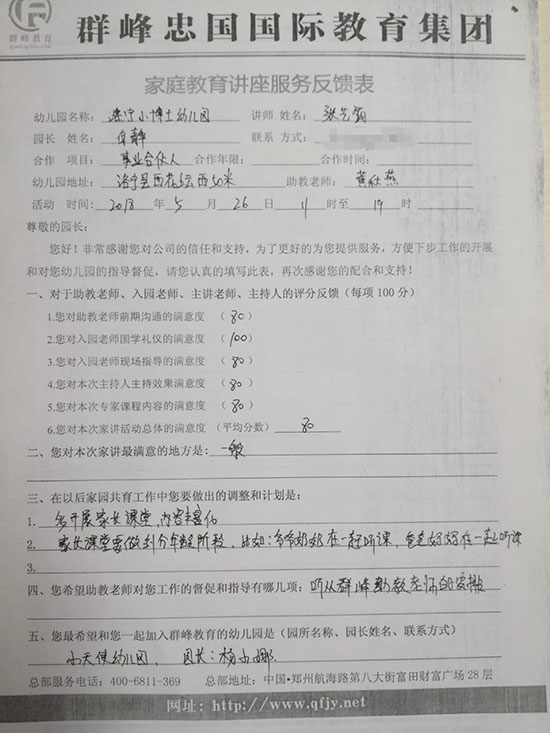 群峰教育
群峰忠国国际教育集团
家庭教育讲座服务反馈表
幼儿园名称：洛宁小博士幼儿园 讲师 姓名：张艺
园长 姓名：静 联系 方式：
合作 项目：事业合伙人 合作年限： 合作时间：
幼儿园地址：洛宁县西花坛西50米 助教老师：黄秋燕
活动 时间：2018 年 5 月 26 日 11 时至 19 时
尊敬的园长：
您好！非常感谢您对公司的信任和支持，为了更好的为您提供服务，方便下步工作的开展
和对您幼儿园的指导督促，请您认真的填写此表，再次感谢您的配合和支持！
一、对于助教老师、入园老师、主讲老师、主持人的评分反馈（每项 100 分）
1.您对助教老师前期沟通的满意度 （80）
2.您对入园老师国学礼仪的满意度 （100）
3.您对入园老师现场指导的满意度 （80）
4.您对本次主持人主持效果满意度 （80）
5.您对本次专家课程内容的满意度 （80）
6.您对本次家讲活动总体的满意度 （平均分数） 80
二、您对本次家讲最满意的地方是：一般
三、在以后家园共育工作中您要做出的调整和计划是：
1. 多开展家长课堂，内容丰富
2. 家长课堂要做到分年龄阶段，比如：爷爷奶奶在一起听课，爸爸妈妈在一起听课
3.
四、您希望助教老师对您工作的督促和指导有哪几项：听从群峰助教老师的安排
五、您最希望和您一起加入群峰教育的幼儿园是（园所名称、园长姓名、联系方式）
小天使幼儿园， 园长：杨娜
总部服务电话：400-6811-369 总部地址：中国·郑州航海路第八大街富田财富广场 28 层
网址：http://www.qfjy.net